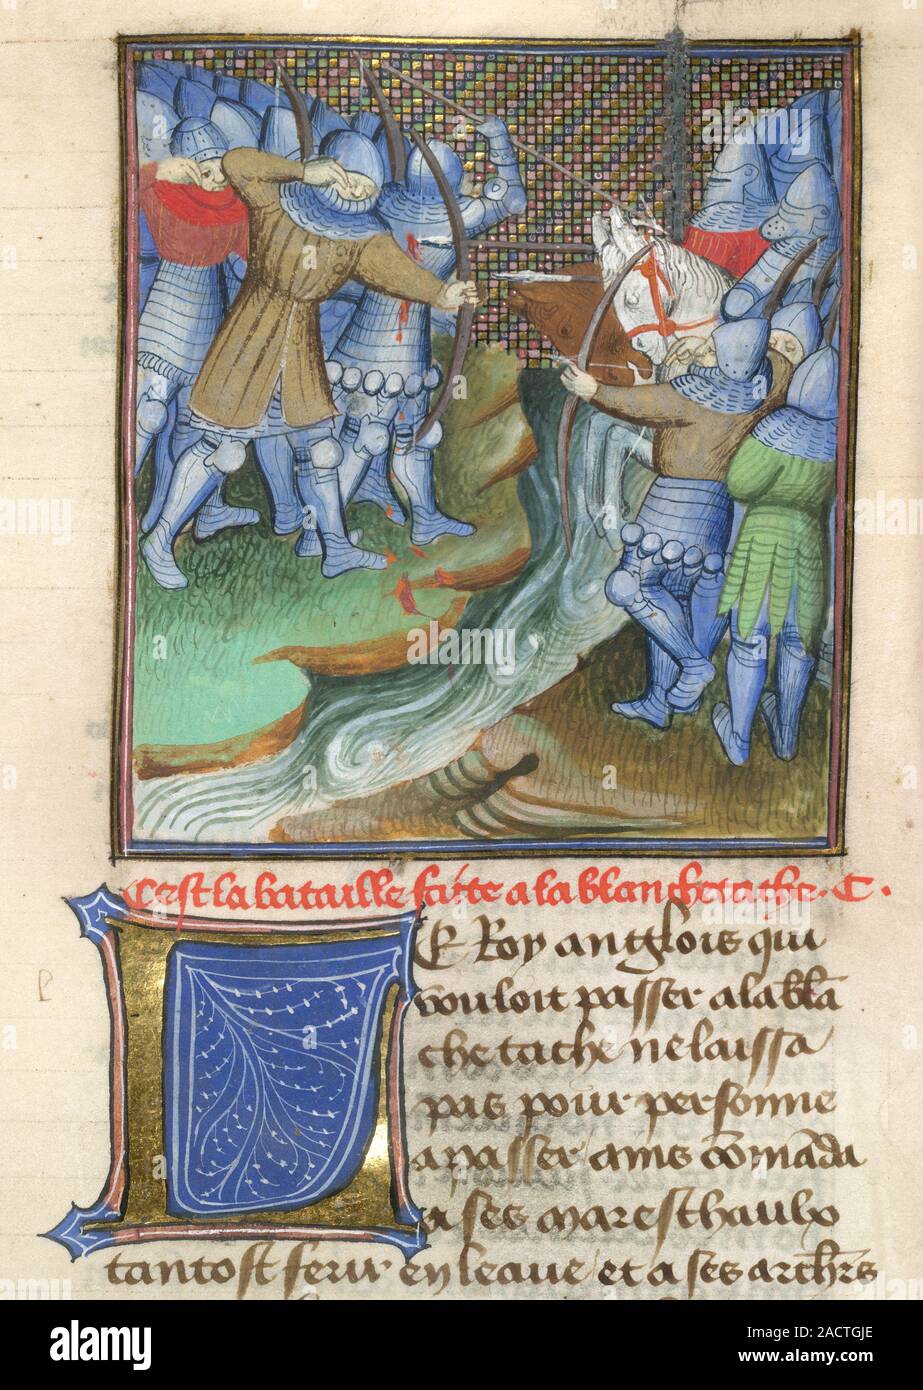 Cest la bataille faitte a la blanchetache. C.
LE Roy anglois qui
vouloit passer a la blā
che tache ne laissa
pas pour personne
a passer ains cōmāda
a ses mareschaulx
tantost ferir en leaue et a ses archr̄s
alamy
Image ID: 2ACTGJE
www.alamy.com